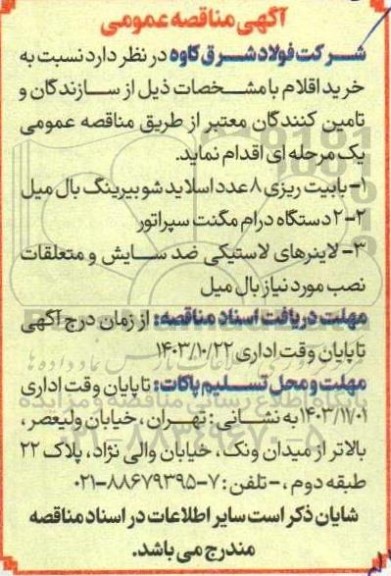 آگهی مناقصه عمومی
شرکت فولاد شرق کاوه در نظر دارد نسبت به
خرید اقلام با مشخصات ذیل از سازندگان و
تامین کنندگان معتبر از طریق مناقصه عمومی
یک مرحله ای اقدام نماید.
۱- بابیت ریزی ۸ عدد اسلاید شو بیرینگ بال میل
۲- ۲ دستگاه درام مگنت سپراتور
۳- لاینرهای لاستیکی ضد سایش و متعلقات
نصب مورد نیاز بال میل
مهلت دریافت اسناد مناقصه: از زمان درج آگهی
تا پایان وقت اداری ۱۴۰۳/۱۰/۲۲
مهلت و محل تسلیم پاکات: تا پایان وقت اداری
۱۴۰۳/۱۱/۰۱ به نشانی: تهران، خیابان ولیعصر،
بالاتر از میدان ونک، خیابان والی نژاد، پلاک ۲۲
طبقه دوم، - تلفن: ۷-۸۸۶۷۹۳۹۵-۰۲۱
شایان ذکر است سایر اطلاعات در اسناد مناقصه
مندرج می باشد.